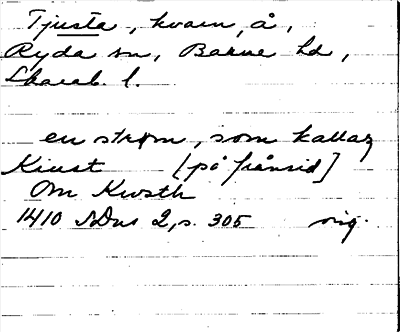 Tjusta, kvarn, å,
Ryda sn, Barne hd,
Skarab. l.
en strøm, som kallaz
Kiust [på frånsid]
Om Kwsth
1410 SDns 2, s. 305 orig.